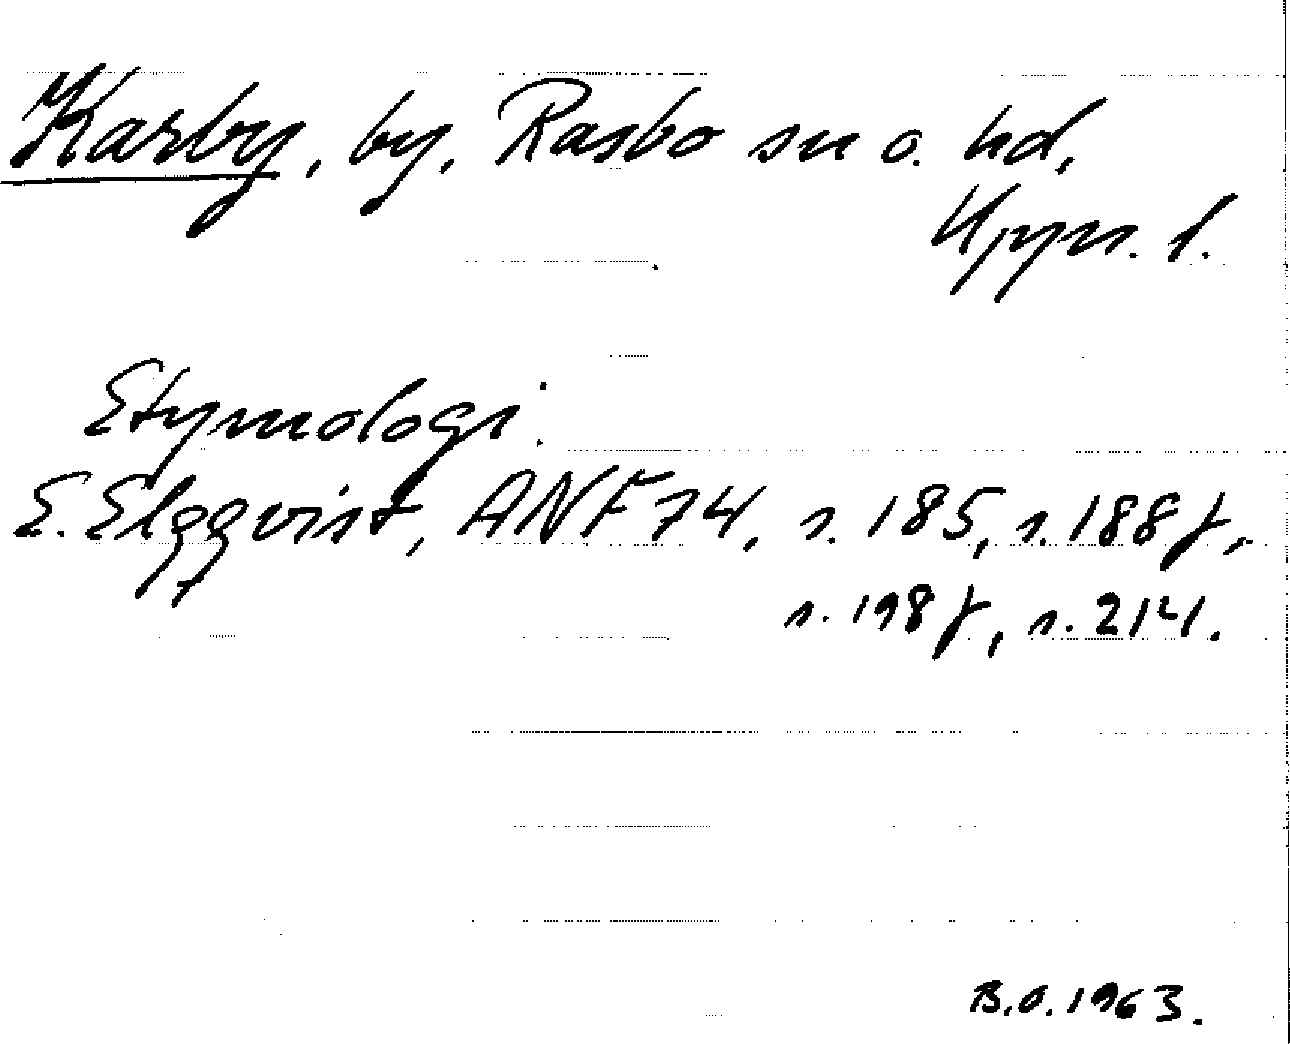 Karby, by, Rasbo sn o. hd,
Upps. l.
Etymologi:
E. Elgqvist, ANF 74, s. 185, s. 188 f,
s. 198 f, s. 214.
B.O. 1963.